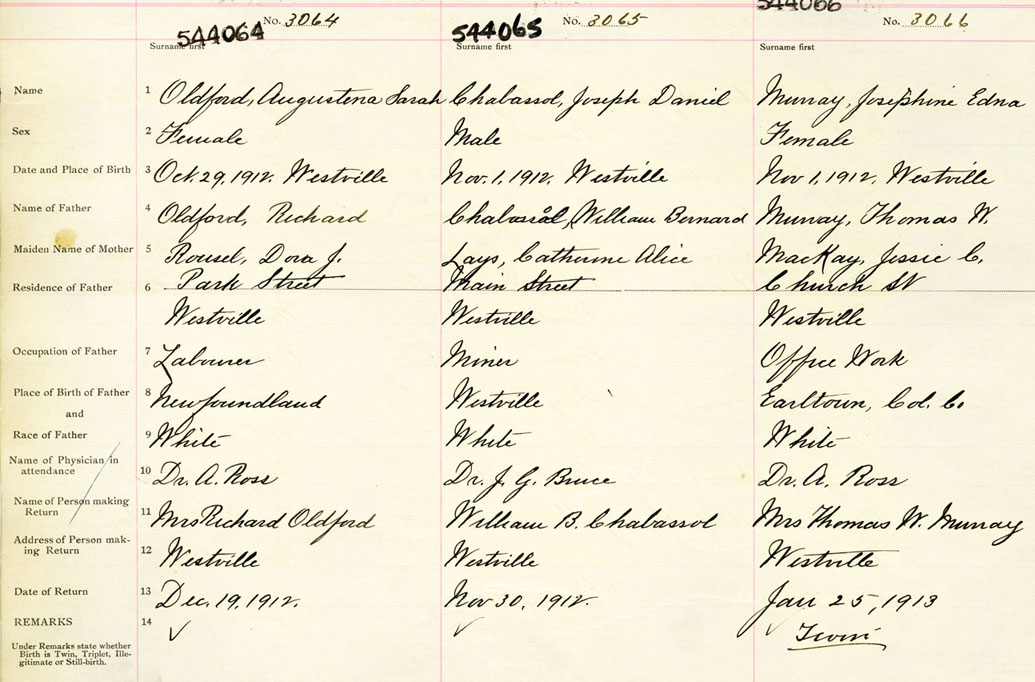 No. 3064 No. 3065 No. 3066
544064 544065 544066
Surname first Surname first Surname first
Name 1 Oldford, Augustena Sarah Chabassol, Joseph Daniel Murray, Josephine Edna
Sex 2 Female Male Female
Date and Place of Birth 3 Oct. 29, 1912. Westville Nov. 1, 1912, Westville Nov 1, 1912, Westville
Name of Father 4 Oldford, Richard Chabassol, William Bernard Murray, Thomas W.
Maiden Name of Mother 5 Rousel, Dora J. Lays, Catherine Alice MacKay, Jessie C.
Residence of Father 6 Park Street Main Street Church St
Westville Westville Westville
Occupation of Father 7 Labourer Miner Office Work
Place of Birth of Father 8 Newfoundland Westville Earltown, Col. Co.
and
Race of Father 9 White White White
Name of Physician in
attendance 10 Dr. A. Ross Dr. J. G. Bruce Dr. A. Ross
Name of Person making
Return 11 Mrs Richard Oldford William B. Chabassol Mrs Thomas W. Murray
Address of Person mak-
ing Return 12 Westville Westville Westville
Date of Return 13 Dec. 19, 1912. Nov 30, 1912. Jan 25, 1913
REMARKS 14 ✓ ✓ ✓ Twin
Under Remarks state whether
Birth is Twin, Triplet, Ille-
gitimate or Still-birth.